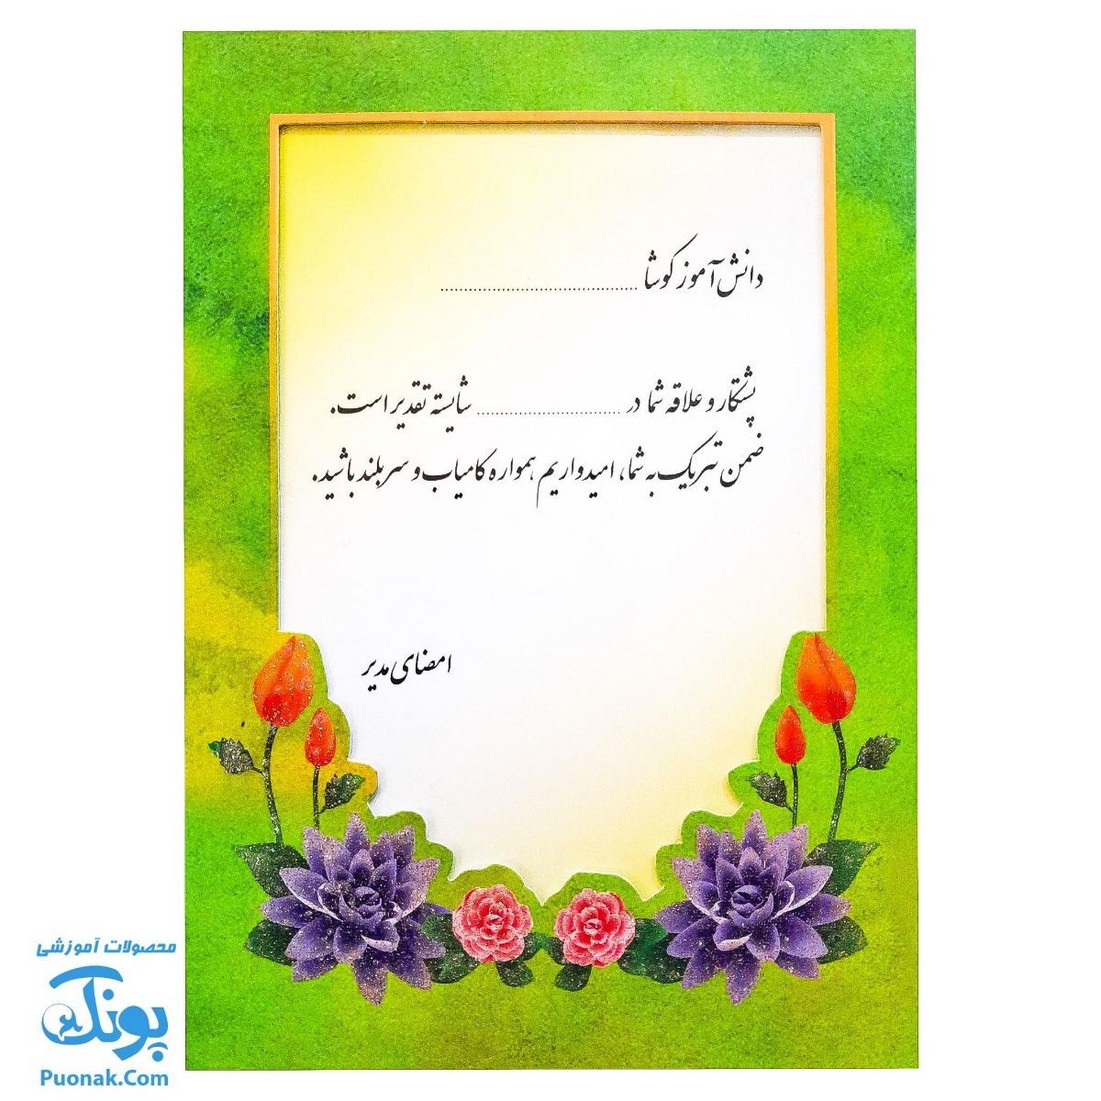 دانش آموز کوشا ........................................
پشتکار و علاقه شما در .............................. شایسته تقدیر است.
ضمن تبریک به شما، امیدواریم همواره کامیاب و سربلند باشید.
امضای مدیر
محصولات آموزشی
پونک
Puonak.Com